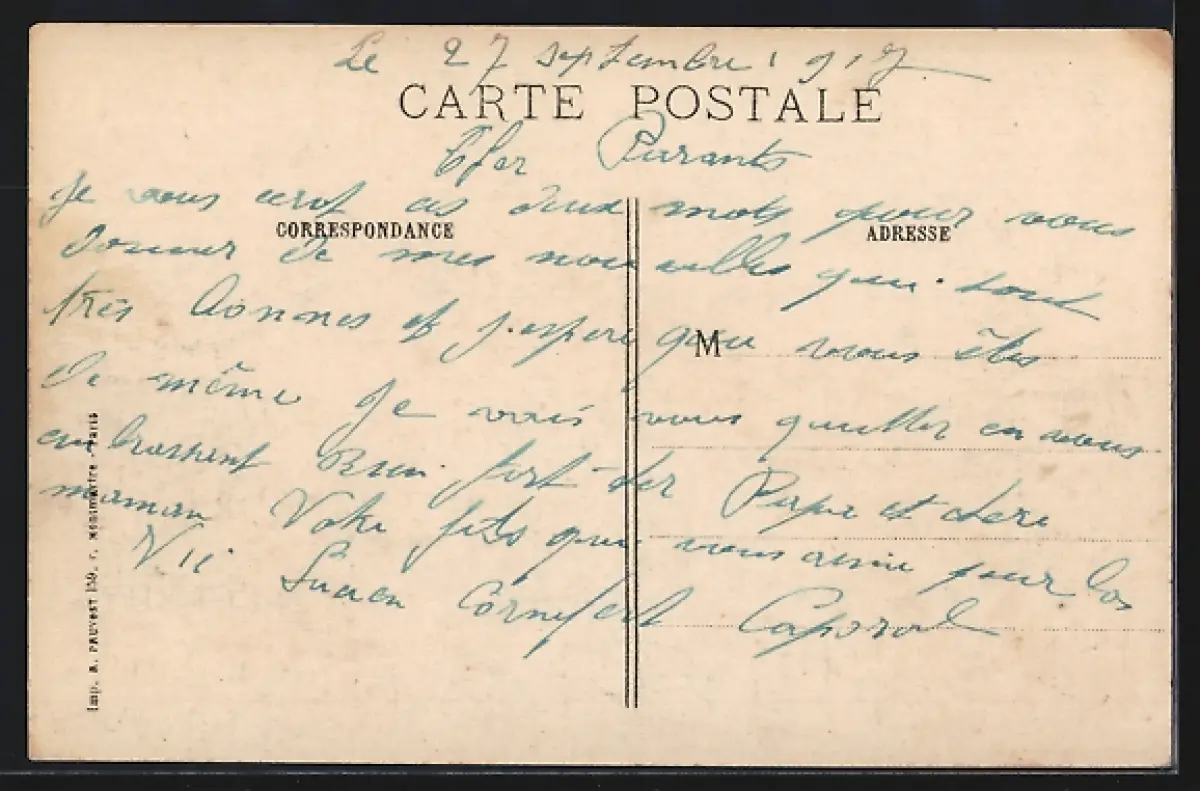 Le 27 septembre 1917
CARTE POSTALE
Cher Parants
Je vous ecrit ces deux mots pour vous
CORRESPONDANCE
ADRESSE
donner de mes nouvelles que sont
très bonnes et j'espere que vous êtes
M
de même Je vais vous quitter en vous
embrassent Bien fort cher Papa et chere
maman Votre fils que vous aime pour la
Vii
Lucien Cornefert Caporal
Imp. A. PRUVOST 159, r. Montmartre, Paris